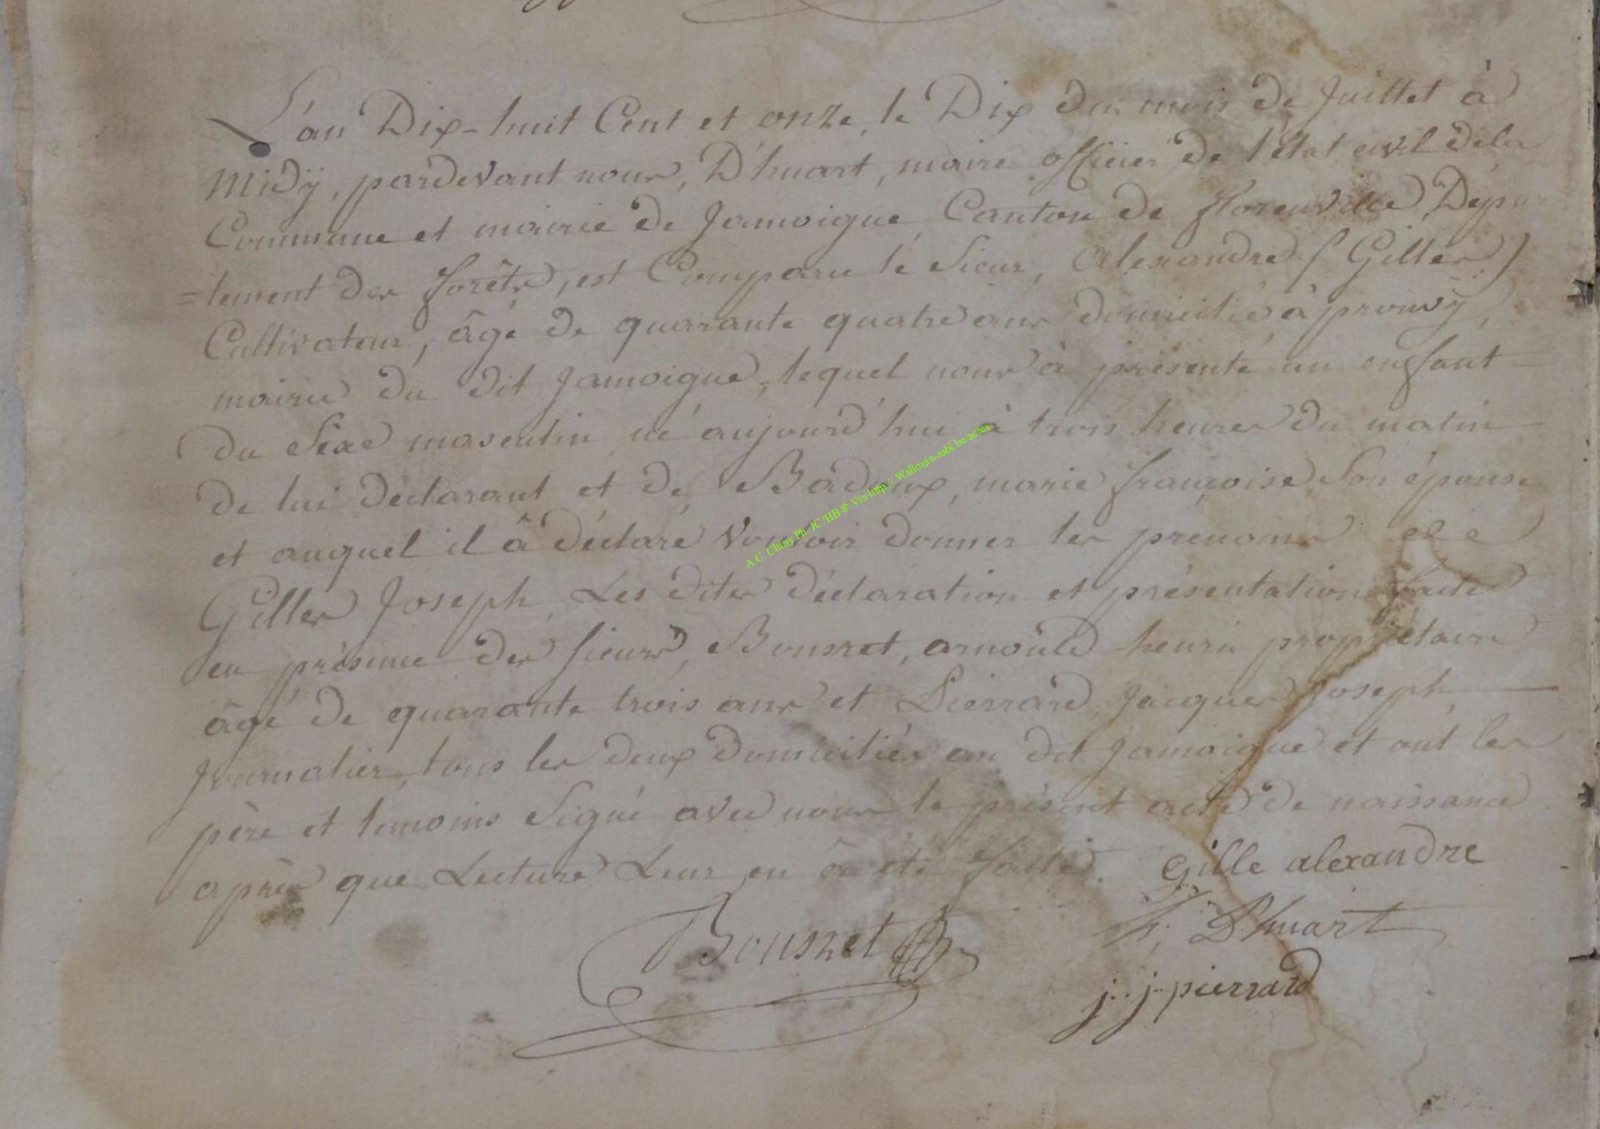 L'an Dix-huit Cent et onze, le Dix du mois de Juillet à
Midÿ, pardevant nous, D'huart, maire officier de l'état civil dela
Commune et mairie de Jamoigne, Canton de florenville, Depar
=tement des forêts, est Comparu le Sieur, Alexandre (Gilles)
Cultivateur, âgé de quarante quatre ans domicilié à prouvÿ,
mairie du dit Jamoigne, lequel nous à présenté un enfant=
du Sexe masculin né aujourd'hui à trois heures du matin
de lui déclarant et de Badoux, marie françoise, Son épouse
et auquel il â déclaré vouloir donner les prénoms de
Gilles Joseph, Les dites déclaration et présentation faite
en présence des sieurs, Bonsret, arnould henri propriétaire
âgé de quarante trois ans et Pierrard Jacques Joseph,
Journalier, tous les deux domiciliés au dit Jamoigne et ont les
père et temoins Signé avec nous le présent acte de naissance
après que Lecture Leur en â été faite. Gille alexandre
F: D'huart
Bonsret
j. j. pierrard
A.C. Chiny Ph. JC/HB ® Via http://Wallonia-asbl.be/actes